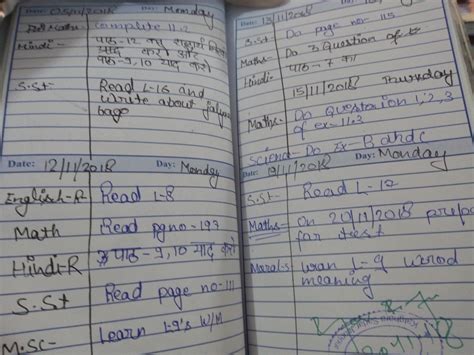 Date: 05/11/2018 Day: Monday
Maths- Complete 11.2
Hindi- पाठ-12 का
याद करो और
पाठ-9,10 याद करो
S.St- Read L-16 and
write about
bage
Date: 12/11/2018 Day: Monday
English-R Read L-8
Math Read pg no-197
Hindi-R पाठ-9,10 याद करो
S.St Read page no-111
M.Sc- Learn L-9's W/M
Date: 13/11/2018
S.St- Do page no- 115
Maths- Do 3 Question of
Hindi- पाठ-7 का
15/11/2018 Thursday
Maths- Do Question 1,2,3
of ex-11.3
Science- Do Ex-B and c
Date: 19/11/2018 Day: Monday
S.St- Read L-17
Maths- On 20/11/2018
for test
Moral.s L-9 word
meaning